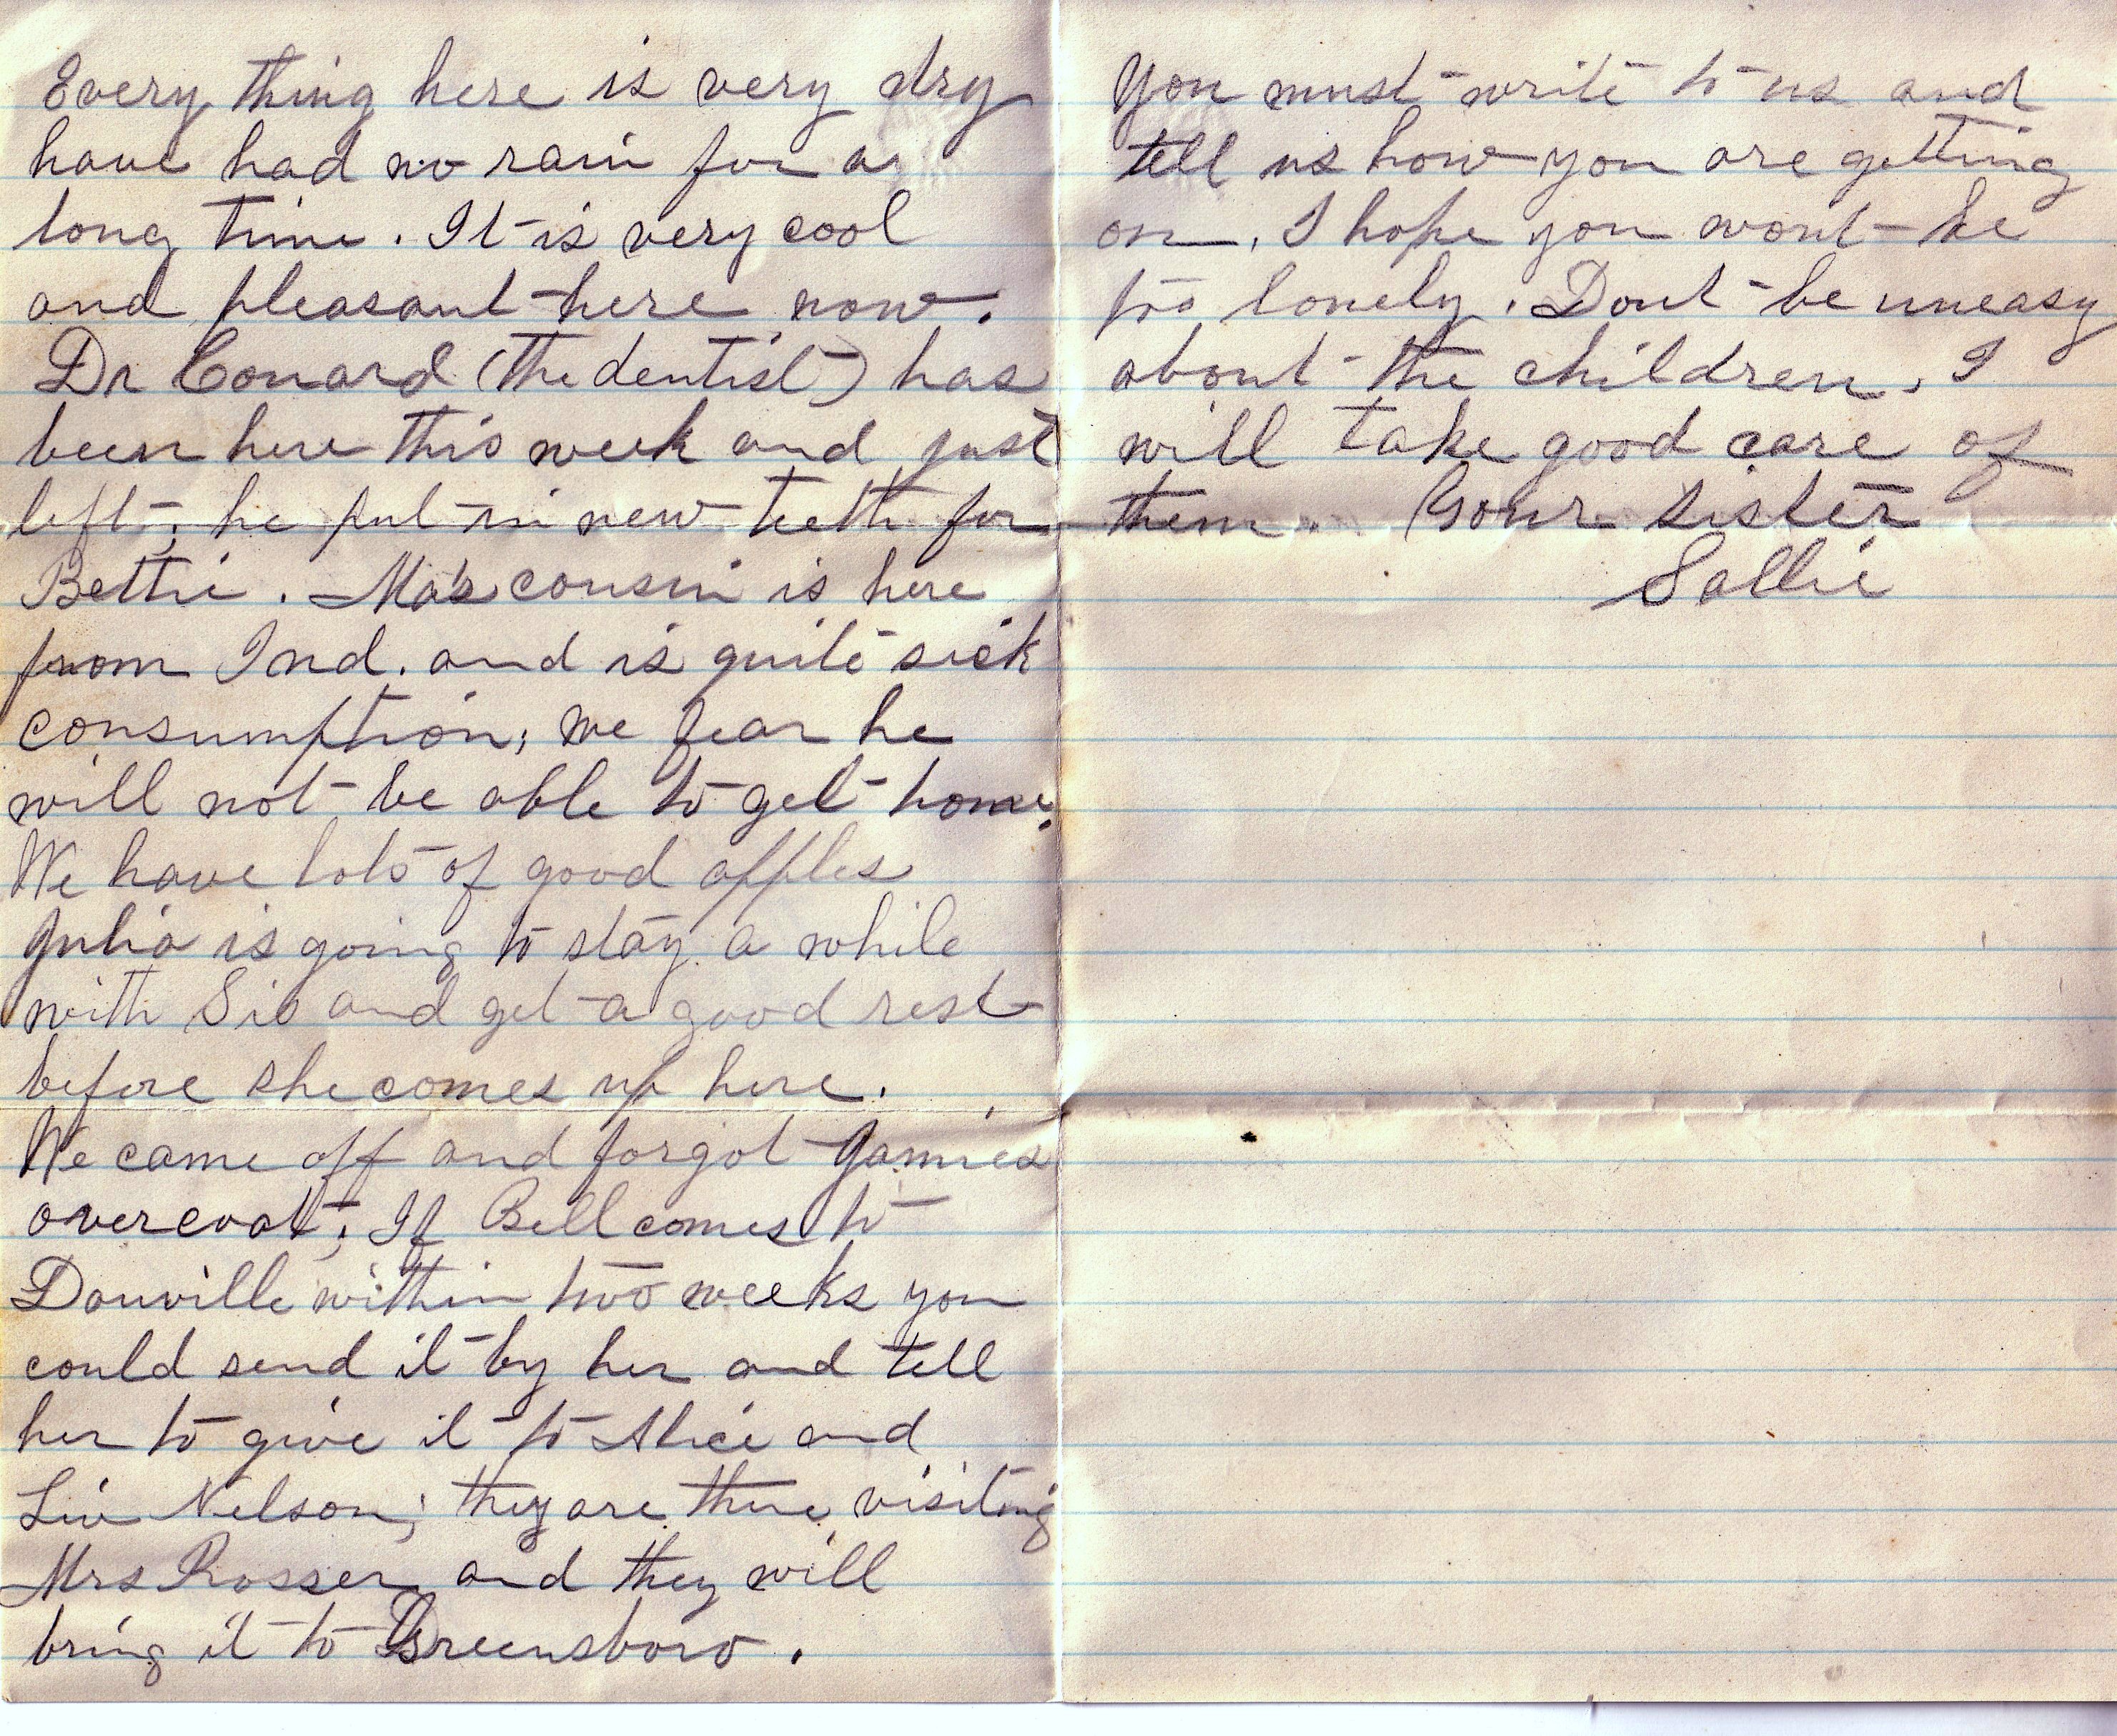 Every thing here is very dry
have had no rain for a
long time. It is very cool
and pleasant here now.
Dr Conard (the dentist) has
been here this week and just
left; he put in new teeth for
Bettie. Ma's cousin is here
from Ind. and is quite sick
consumption; we fear he
will not be able to get home.
We have lots of good apples
Julia is going to stay a while
with Sis and get a good rest
before she comes up here.
We came off and forgot Jamies
overcoat; If Bell comes to
Danville within two weeks you
could send it by her and tell
her to give it to Alice and
Liv Nelson; they are there visiting
Mrs Rosser and they will
bring it to Greensboro.
You must write to us and
tell us how you are getting
on, I hope you wont be
too lonely. Dont be uneasy
about the children, I
will take good care of
them. Your sister
Sallie